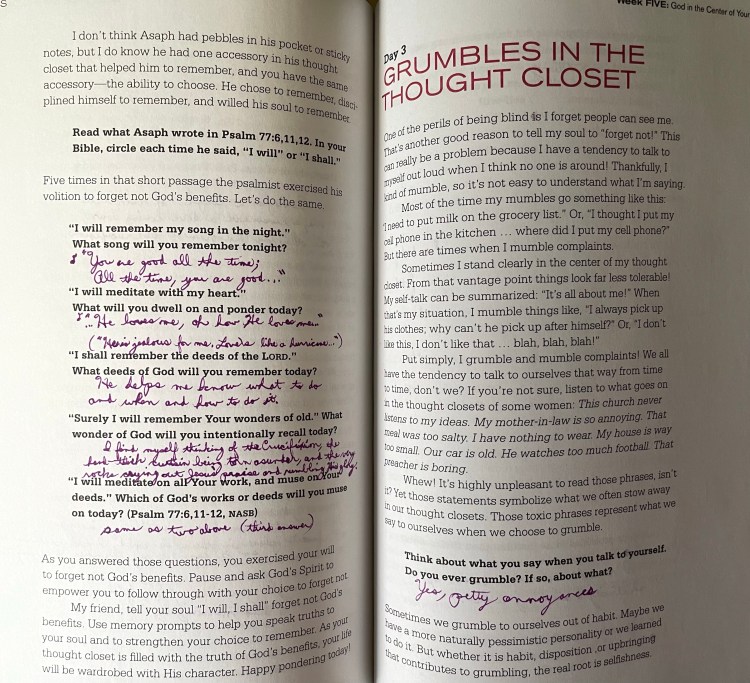 I don't think Asaph had pebbles in his pocket or sticky
notes, but I do know he had one accessory in his thought
closet that helped him to remember, and you have the same
accessory—the ability to choose. He chose to remember, disci-
plined himself to remember, and willed his soul to remember.
Read what Asaph wrote in Psalm 77:6,11,12. In your
Bible, circle each time he said, "I will" or "I shall."
Five times in that short passage the psalmist exercised his
volition to forget not God's benefits. Let's do the same.
"I will remember my song in the night."
What song will you remember tonight?
"You are good all the time;
All the time, you are good..."
"I will meditate with my heart."
What will you dwell on and ponder today?
"...He loves me, oh how He loves me..."
("He is jealous for me, Loves like a hurricane...")
"I shall remember the deeds of the LORD."
What deeds of God will you remember today?
He helps me know what to do
and when and how to do it.
"Surely I will remember Your wonders of old." What
wonder of God will you intentionally recall today?
I find myself thinking of the Crucifixion, the
hand-thick curtain being torn asunder, and the very
rocks crying out Jesus' praise and rumbling His glory.
"I will meditate on all Your work, and muse on Your
deeds." Which of God's works or deeds will you muse
on today? (Psalm 77:6,11-12, NASB)
same as two above (third answer)
As you answered those questions, you exercised your will
to forget not God's benefits. Pause and ask God's Spirit to
empower you to follow through with your choice to forget not
My friend, tell your soul "I will, I shall" forget not God's
benefits. Use memory prompts to help you speak truths to
your soul and to strengthen your choice to remember. As your
thought closet is filled with the truth of God's benefits, your life
will be wardrobed with His character. Happy pondering today!
Week FIVE: God in the Center of Your
Day 3
GRUMBLES IN THE
THOUGHT CLOSET
One of the perils of being blind is I forget people can see me.
That's another good reason to tell my soul to "forget not!" This
can really be a problem because I have a tendency to talk to
myself out loud when I think no one is around! Thankfully, I
kind of mumble, so it's not easy to understand what I'm saying.
Most of the time my mumbles go something like this:
"I need to put milk on the grocery list." Or, "I thought I put my
cell phone in the kitchen ... where did I put my cell phone?"
But there are times when I mumble complaints.
Sometimes I stand clearly in the center of my thought
closet. From that vantage point things look far less tolerable!
My self-talk can be summarized: "It's all about me!" When
that's my situation, I mumble things like, "I always pick up
his clothes; why can't he pick up after himself?" Or, "I don't
like this, I don't like that ... blah, blah, blah!"
Put simply, I grumble and mumble complaints! We all
have the tendency to talk to ourselves that way from time
to time, don't we? If you're not sure, listen to what goes on
in the thought closets of some women: This church never
listens to my ideas. My mother-in-law is so annoying. That
meal was too salty. I have nothing to wear. My house is way
too small. Our car is old. He watches too much football. That
preacher is boring.
Whew! It's highly unpleasant to read those phrases, isn't
it? Yet those statements symbolize what we often stow away
in our thought closets. Those toxic phrases represent what we
say to ourselves when we choose to grumble.
Think about what you say when you talk to yourself.
Do you ever grumble? If so, about what?
Yes, petty annoyances
Sometimes we grumble to ourselves out of habit. Maybe we
have a more naturally pessimistic personality or we learned
to do it. But whether it is habit, disposition ,or upbringing
that contributes to grumbling, the real root is selfishness.